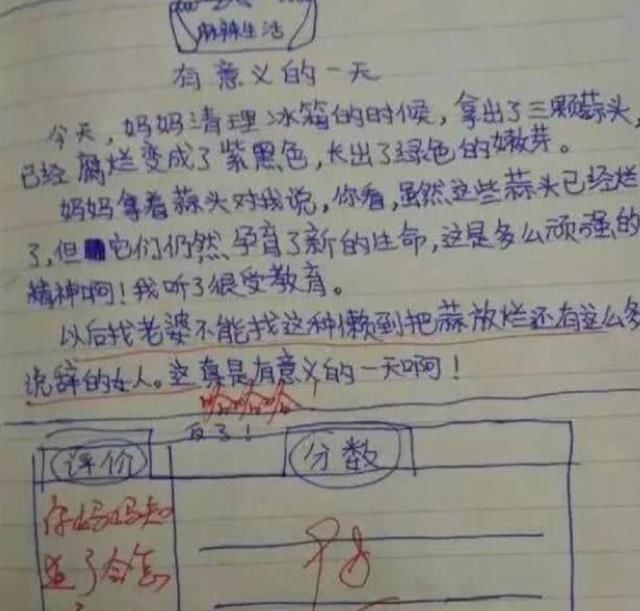 麻辣生活
有意义的一天
今天,妈妈清理冰箱的时候,拿出了三颗蒜头,
已经腐烂变成了紫黑色,长出了绿色的嫩芽。
妈妈拿着蒜头对我说,你看,虽然这些蒜头已经烂
了,但它们仍然孕育了新的生命,这是多么顽强的
精神啊!我听了很受教育。
以后找老婆不能找这种懒到把蒜放烂还有这么多
说辞的女人。这真是有意义的一天啊!
哈哈哈哈
百了!
评价
分数
你妈妈知
道了会怎